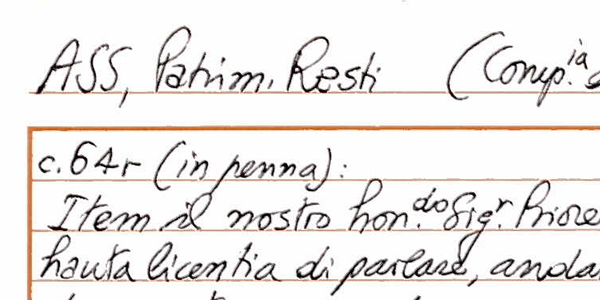 ASS, Patrim. Resti (Comp.ia
c. 64r (in penna):
Item il nostro hon.do Sig.r Priore
hauta licentia di parlare, anda